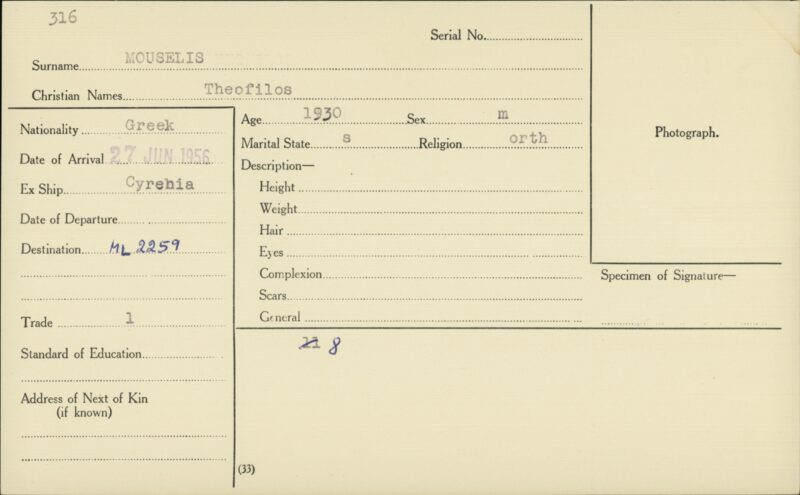 316
Serial No.
Surname MOUSELIS
Christian Names Theofilos
Nationality Greek
Date of Arrival 27 JUN 1956
Ex Ship Cyrenia
Date of Departure
Destination ML 2259
Trade 1
Standard of Education
Address of Next of Kin
(if known)
Age 1930 Sex m
Marital State s Religion orth
Description—
Height
Weight
Hair
Eyes
Complexion
Scars
General
11 8
(33)
Photograph.
Specimen of Signature—